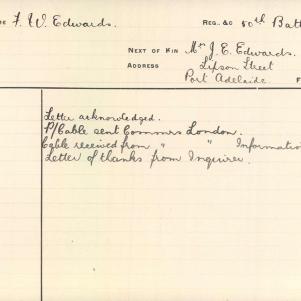 F. W. Edwards. REG. &C 50th Batt
NEXT OF KIN Mrs J. E. Edwards.
ADDRESS Lipson Street
Port Adelaide F
Letter acknowledged.
P/Cable sent Commrs London.
Cable received from " " Informatio
Letter of thanks from Inquirer.